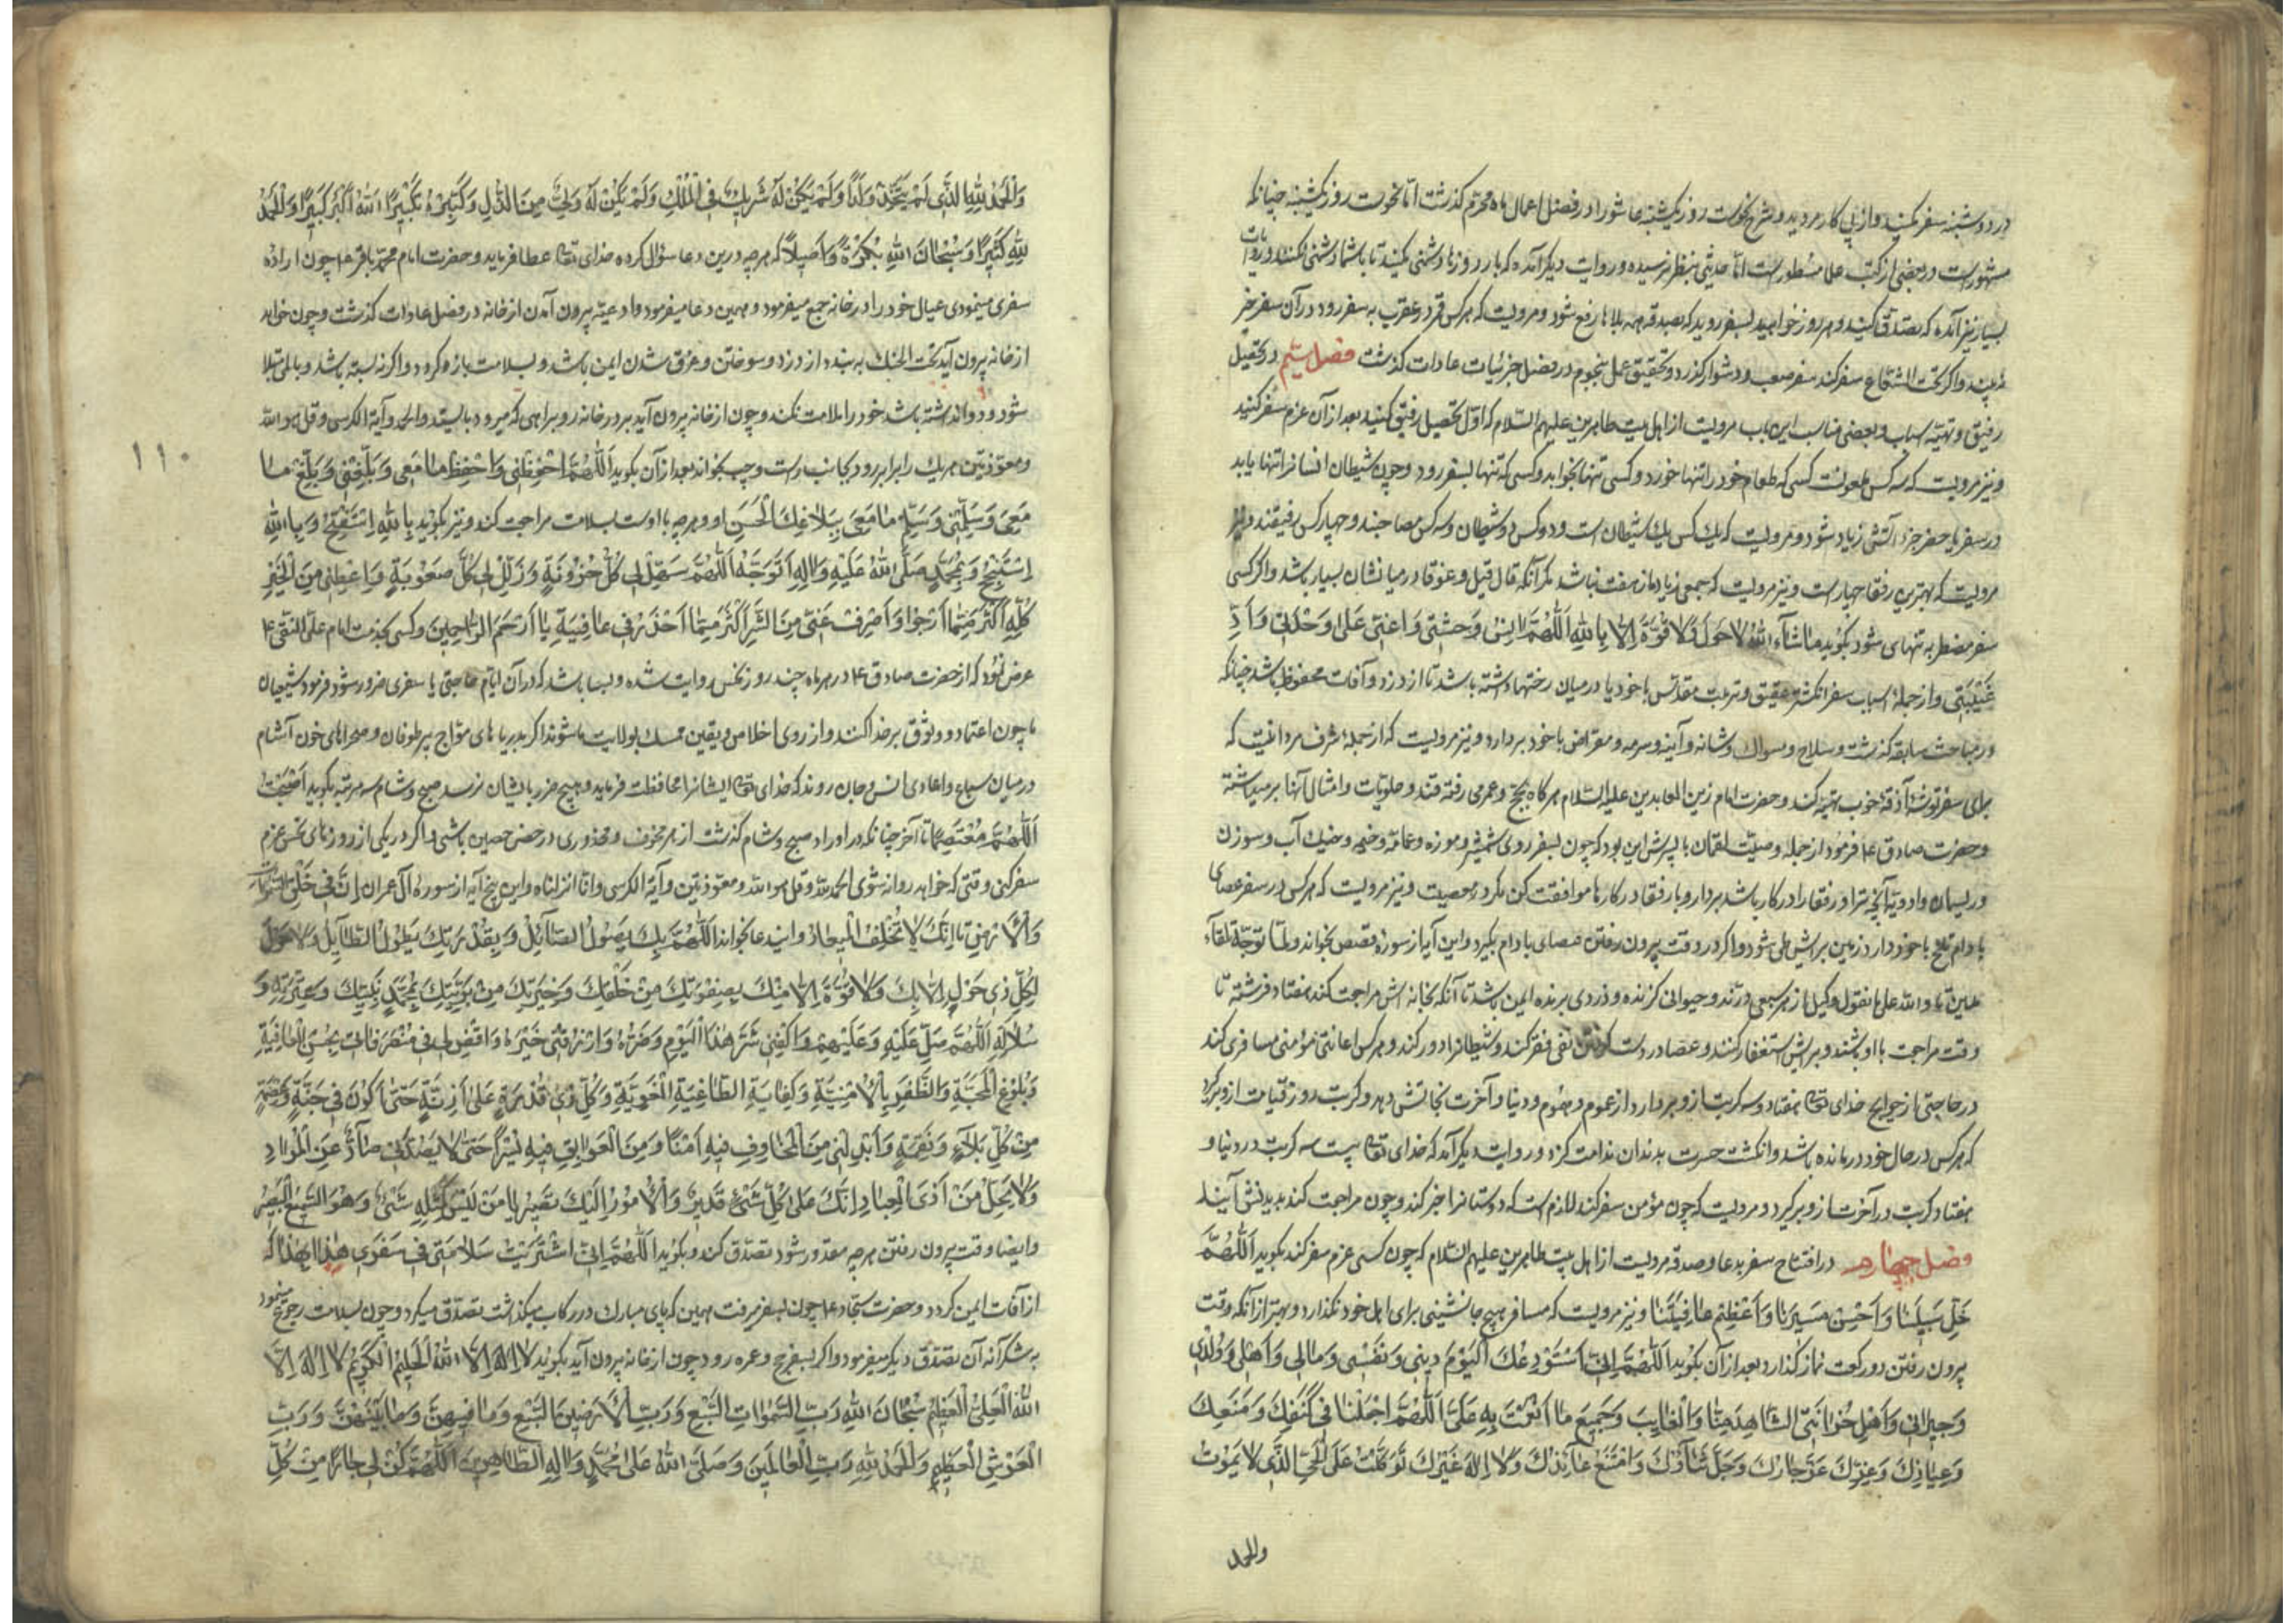 در دوشنبه سفر مکنید و از پی کار مروید و شرح نحوست روز یکشنبه عاشورا در فصل اعمال ماه محرم گذشت اما نحوست روز یکشنبه چنانکه
مشهور است و در بعضی از کتب علما مسطور است اما حدیثی بنظر نرسیده و در روایت دیگر آمده که با روزها دشمنی مکنید تا با شما دشمنی نکنند و روایات
بسیار نیز آمده که تصدق کنید و هر روز خواهید بسفر روید که بصدقه همه بلاها رفع شود و مرویست که هر کس قمر در عقرب به سفر رود در آن سفر خیر
نبیند و اگر تحت الشعاع سفر کند سفر صعب و دشوار گذرد و تحقیق عمل نجوم در فصل جزئیات عادات گذشت فصل سیم در تحصیل
رفیق و تهیه اسباب و بعضی مناسب این باب مرویست از اهل بیت طاهرین علیهم السلام که اول تحصیل رفیق کنید بعد از آن عزم سفر کنید
و نیز مرویست که سه کس ملعونند کسی که طعام خود را تنها خورد و کسی تنها بخوابد و کسی که تنها بسفر رود و چون شیطان انسانرا تنها یابد
در سفر یا حضر جزء آتشی زیاد شود و مرویست که یک کس یک شیطان است و دو کس دو شیطان و سه کس مصاحبند و چهار کس رفیقند و نیز
مرویست که بهترین رفقا چهار است و نیز مرویست که جمعی زیاده از هفت نباشد مگر آنکه قال و قیل و غوغا در میانشان بسیار باشد و اگر کسی
سفر مضطر به تنهای شود بگوید ما شآء الله لا حول و لا قوة الا بالله اللهم انس وحشتی و اعنی علی وحدتی و ادّ
غیبتی و از جملهٔ اسباب سفر انگشتر عقیق و تربت مقدس با خود یا در میان رختها داشته باشد تا از دزد و آفات محفوظ باشد چنانکه
در مباحث سابقه گذشت و سلاح و مسواک و شانه و آینه و سرمه و مقراض با خود بردارد و نیز مرویست که از جملهٔ شرف مرد آنست که
برای سفر توشه آذوقه خوب تهیه کند و حضرت امام زین العابدین علیه السلام هرگاه بحج و عمره می رفته قند و حلویات و امثال آنها بر میداشته
و حضرت صادق ع فرمود از جمله وصیت لقمان با پسرش این بود که چون بسفر روی شمشیر و موزه و عمامه و خیمه و خیک آب و سوزن
و ریسمان و ادویه آنچه ترا و رفقا را در کار باشد بردار و با رفقا در کارها موافقت کن مگر در معصیت و نیز مرویست که هر کس در سفر عصای
بادام تلخ با خود دارد زمین براش طی شود و اگر در وقت بیرون رفتن عصای بادام بگیرد و این آیه از سورهٔ قصص بخواند و لما توجه تلقآء
مدین تا و الله علی ما نقول وکیل از هر سبعی درنده و حیوانی گزنده و دزدی برنده ایمن باشد تا آنکه بخانه اش مراجعت کند هفتاد فرشته تا
وقت مراجعت با او باشند و براش استغفار کنند و عصا در دست گرفتن نفی فقر کند و شیطانرا دور کند و هر کس اعانتی مؤمنی مسافری کند
در حاجتی از حوایج خدای تعالی هفتاد و سه کربت از او بردارد از غموم و هموم و دنیا و آخرت نجاتش دهد و کربت روز قیامت ازو برگیرد
که هر کس در حال خود درمانده باشد و انگشت حسرت بدندان ندامت گزد و در روایت دیگر آمده که خدای تعالی بیست سه کربت در دنیا و
هفتاد کربت در آخرت ازو برگیرد و مرویست که چون مؤمن سفر کند لازم است که دوستانرا خبر کند و چون مراجعت کند بدیدنش آیند
فصل چهارم در افتتاح سفر بدعا و صدقه مرویست از اهل بیت طاهرین علیهم السلام که چون کسی عزم سفر کند بگوید اللهمّ
خَلِّ سَبیلَنا وَ اَحْسِنْ مَسیرَنا وَ اَعْظِمْ عافِیَتَنا و نیز مرویست که مسافر هیچ جانشینی برای اهل خود نگذارد و بهتر از آنکه وقت
بیرون رفتن دو رکعت نماز گذارد بعد از آن بگوید اَللّهُمَّ اِنّی اَسْتَوْدِعُکَ الْیَوْمَ دینی وَ نَفْسی وَ مالی وَ اَهْلی وَ وُلْدی
وَ جیرانی وَ اَهْلَ حُزانَتی الشّاهِدَ مِنّا وَ الْغایِبَ وَ جَمیعَ ما اَنْعَمْتَ بِهِ عَلَیَّ اَللّهُمَّ اجْعَلْنا فی کَنَفِکَ وَ مَنْعِکَ
وَ عِیاذِکَ وَ عِزِّکَ عَزَّ جارُکَ وَ جَلَّ ثَنآؤُکَ وَ امْتَنَعَ عآئِذُکَ وَ لا اِلهَ غَیْرُکَ تَوَکَّلْتُ عَلَی الْحَیِّ الَّذی لا یَمُوتُ
والحمد
وَ الْحَمْدُ لِلّهِ الَّذی لَمْ یَتَّخِذْ وَلَدًا وَ لَمْ یَکُنْ لَهُ شَریکٌ فِی الْمُلْکِ وَ لَمْ یَکُنْ لَهُ وَلِیٌّ مِنَ الذُّلِّ وَ کَبِّرْهُ تَکْبیرًا اَللهُ اَکْبَرُ کَبیرًا وَ الْحَمْدُ
لِلّهِ کَثیرًا وَ سُبْحانَ اللهِ بُکْرَةً وَ اَصیلاً که هر چه درین دعا سؤال کرده خدای تعالی عطا فرماید و حضرت امام محمد باقر ع چون اراده
سفری مینمودی عیال خود را در خانه جمع میفرمود و همین دعا میفرمود و ادعیه بیرون آمدن از خانه در فصل عادات گذشت و چون خواهد
از خانه بیرون آید تحت الحنک به بندد از دزد و سوختن و غرق شدن ایمن باشد و بسلامت بازگردد و اگر نه بسته باشد و ببلائی مبتلا
شود و دوا نداشته باشد خود را ملامت نکند و چون از خانه بیرون آید بر در خانه رو براهی که میرود بایستد و الحمد و آیة الکرسی و قل هو الله
و معوذتین هر یک را برابر رو و بجانب راست و چپ بخواند بعد از آن بگوید اَللّهُمَّ احْفَظْنی وَ احْفَظْ ما مَعی وَ بَلِّغْنی وَ بَلِّغْ ما
مَعی وَ سَلِّمْنی وَ سَلِّمْ ما مَعی بِبَلاغِکَ الْحَسَنِ او و هر چه با اوست بسلامت مراجعت کند و نیز بگوید بِاللهِ اَسْتَفْتِحُ وَ بِاللهِ
اَسْتَنْجِحُ وَ بِمُحَمَّدٍ صَلَّی اللهُ عَلَیْهِ وَ الِهِ اَتَوَجَّهُ اَللّهُمَّ سَهِّلْ لی کُلَّ حُزُونَةٍ وَ ذَلِّلْ لی کُلَّ صُعُوبَةٍ وَ اَعْطِنی مِنَ الْخَیْرِ
کُلِّهِ اَکْثَرَ مِمّا اَرْجُوا وَ اصْرِفْ عَنّی مِنَ الشَّرِّ اَکْثَرَ مِمّا اَحْذَرُ فی عافِیَةٍ یا اَرْحَمَ الرّاحِمینَ و کسی بخدمت امام علی النقی ع
عرض نمود که از حضرت صادق ع در هر ماه چند روز نحس روایت شده و بسا باشد که در آن ایام حاجتی یا سفری ضرور شود فرمود شیعیان
ما چون اعتماد و وثوق بر خدا کنند و از روی اخلاص و یقین متمسک بولایت ما شوند اگر بدریاهای مواج پر طوفان و صحراهای خون آشام
در میان سباع و اعادی انس و جان روند که خدای تعالی ایشانرا محافظت فرماید و هیچ ضرر بایشان نرسد صبح و شام سه مرتبه بگوید اَصْبَحْتُ
اَللّهُمَّ مُعْتَصِمًا تا آخر چنانکه در اوراد صبح و شام گذشت از هر مخوف و محذوری در حصن حصین باشی و اگر در یکی از روزهای نحس عزم
سفر کنی وقتی که خواهد روانه شوی الحمد لله و قل هو الله و معوذتین و آیة الکرسی و انا انزلناه و این پنج آیه از سورهٔ آل عمران اِنَّ فی خَلْقِ السَّمواتِ
وَ الْاَرْضِ تا اِنَّکَ لا تُخْلِفُ الْمیعادَ و ایندعا بخواند اَللّهُمَّ بِکَ یَصُولُ الصّائِلُ وَ بِقُدْرَتِکَ یَطُولُ الطّآئِلُ وَ لا حَوْلَ
لِکُلِّ ذی حَوْلٍ اِلّا بِکَ وَ لا قُوَّةَ اِلّا مِنْکَ بِصِفْوَتِکَ مِنْ خَلْقِکَ وَ خِیَرَتِکَ مِنْ بَرِیَّتِکَ مُحَمَّدٍ نَبِیِّکَ وَ عِتْرَتِهِ وَ
سُلالَتِهِ اَللّهُمَّ صَلِّ عَلَیْهِ وَ عَلَیْهِمْ وَ اکْفِنی شَرَّ هذَا الْیَوْمِ وَ ضَرَّهُ وَ ارْزُقْنی خَیْرَهُ وَ اقْضِ لی فی مُتَصَرَّفاتی بِحُسْنِ الْعافِیَةِ
وَ بُلُوغِ الْمَحَبَّةِ وَ الظَّفَرِ بِالْاُمْنِیَّةِ وَ کِفایَةِ الطّاغِیَةِ الْغَوِیَّةِ وَ کُلِّ ذی قُدْرَةٍ عَلی اَذِیَّةٍ حَتّی اَکُونَ فی جُنَّةٍ وَ عِصْمَةٍ
مِنْ کُلِّ بَلآءٍ وَ نَقِمَةٍ وَ اَبْدِلْنی مِنَ الْمَخاوِفِ فیهِ اَمْنًا وَ مِنَ الْعَوائِقِ فیهِ یُسْرًا حَتّی لا یَصُدَّنی صآدٌّ عَنِ الْمُرادِ
وَ لا یَحِلَّ مِنْ اَذَی الْعِبادِ اِنَّکَ عَلی کُلِّ شَیْءٍ قَدیرٌ وَ الْاُمُورُ اِلَیْکَ تَصیرُ یا مَنْ لَیْسَ کَمِثْلِهِ شَیْءٌ وَ هُوَ السَّمیعُ الْبَصیرُ
و ایضا وقت بیرون رفتن هر چه مقدور شود تصدق کند و بگوید اَللّهُمَّ اِنّی اشْتَرَیْتُ سَلامَتی فی سَفَری هذا بِهذا که
از آفات ایمن گردد و حضرت سجاد ع چون بسفر میرفت همین که پای مبارک در رکاب میگذاشت تصدق میکرد و چون بسلامت رجوع مینمود
به شکرآنه آن تصدق دیگر میفرمود و اگر بسفر حج و عمره رود چون از خانه بیرون آید بگوید لا اِلهَ اِلَّا اللهُ الْحَلیمُ الْکَریمُ لا اِلهَ اِلَّا
اللهُ الْعَلِیُّ الْعَظیمُ سُبْحانَ اللهِ رَبِّ السَّمواتِ السَّبْعِ وَ رَبِّ الْاَرَضینَ السَّبْعِ وَ ما فیهِنَّ وَ ما بَیْنَهُنَّ وَ رَبِّ
الْعَرْشِ الْعَظیمِ وَ الْحَمْدُ لِلّهِ رَبِّ الْعالَمینَ وَ صَلَّی اللهُ عَلی مُحَمَّدٍ وَ الِهِ الطّاهِرینَ اَللّهُمَّ کُنْ لی جارًا مِنْ کُلِّ
۱۱۰